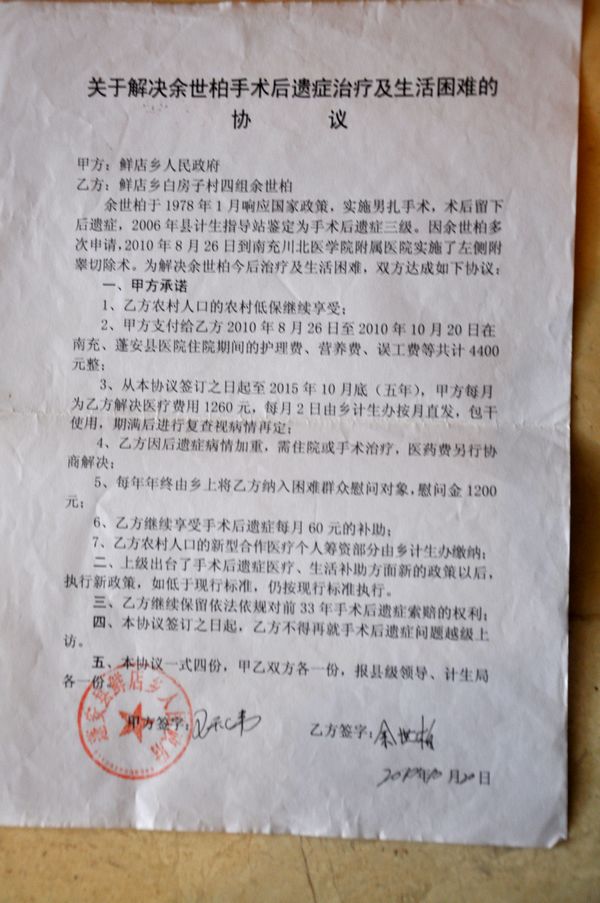 关于解决余世柏手术后遗症治疗及生活困难的
协 议
甲方：鲜店乡人民政府
乙方：鲜店乡白房子村四组余世柏
余世柏于1978年1月响应国家政策，实施男扎手术，术后留下
后遗症，2006年县计生指导站鉴定为手术后遗症三级。因余世柏多
次申请，2010年8月26日到南充川北医学院附属医院实施了左侧附
睾切除术。为解决余世柏今后治疗及生活困难，双方达成如下协议：
一、甲方承诺
1、乙方农村人口的农村低保继续享受；
2、甲方支付给乙方2010年8月26日至2010年10月20日在
南充、蓬安县医院住院期间的护理费、营养费、误工费等共计4400
元整；
3、从本协议签订之日起至2015年10月底（五年），甲方每月
为乙方解决医疗费用1260元，每月2日由乡计生办按月直发，包干
使用，期满后进行复查视病情再定；
4、乙方因后遗症病情加重，需住院或手术治疗，医药费另行协
商解决；
5、每年年终由乡上将乙方纳入困难群众慰问对象，慰问金1200
元；
6、乙方继续享受手术后遗症每月60元的补助；
7、乙方农村人口的新型合作医疗个人筹资部分由乡计生办缴纳；
二、上级出台了手术后遗症医疗、生活补助方面新的政策以后，
执行新政策，如低于现行标准，仍按现行标准执行。
三、乙方继续保留依法依规对前33年手术后遗症索赔的权利；
四、本协议签订之日起，乙方不得再就手术后遗症问题越级上
访。
五、本协议一式四份，甲乙双方各一份，报县级领导、计生局
各一份
蓬安县鲜店乡人民政府
甲方签字：
乙方签字：余世柏
2010年10月20日